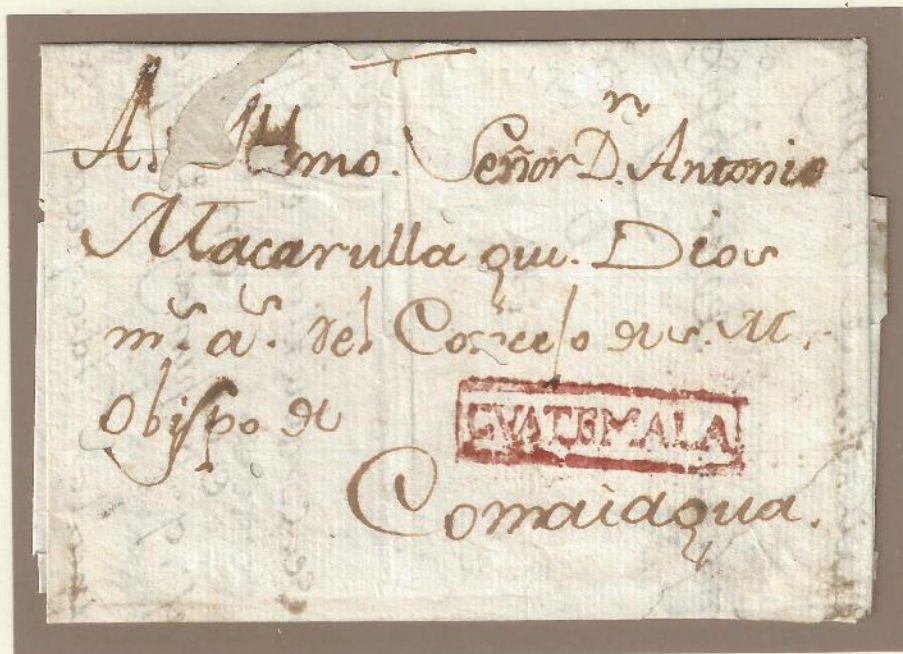 A. Illmo. Señor Dn. Antonio
Macarulla que. Dios
ms. as. del Consejo de s. M.
Obispo de
GVATEMALA
Comaiagua.